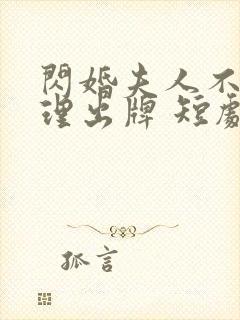 閃婚夫人不
理出牌 短劇
孤言